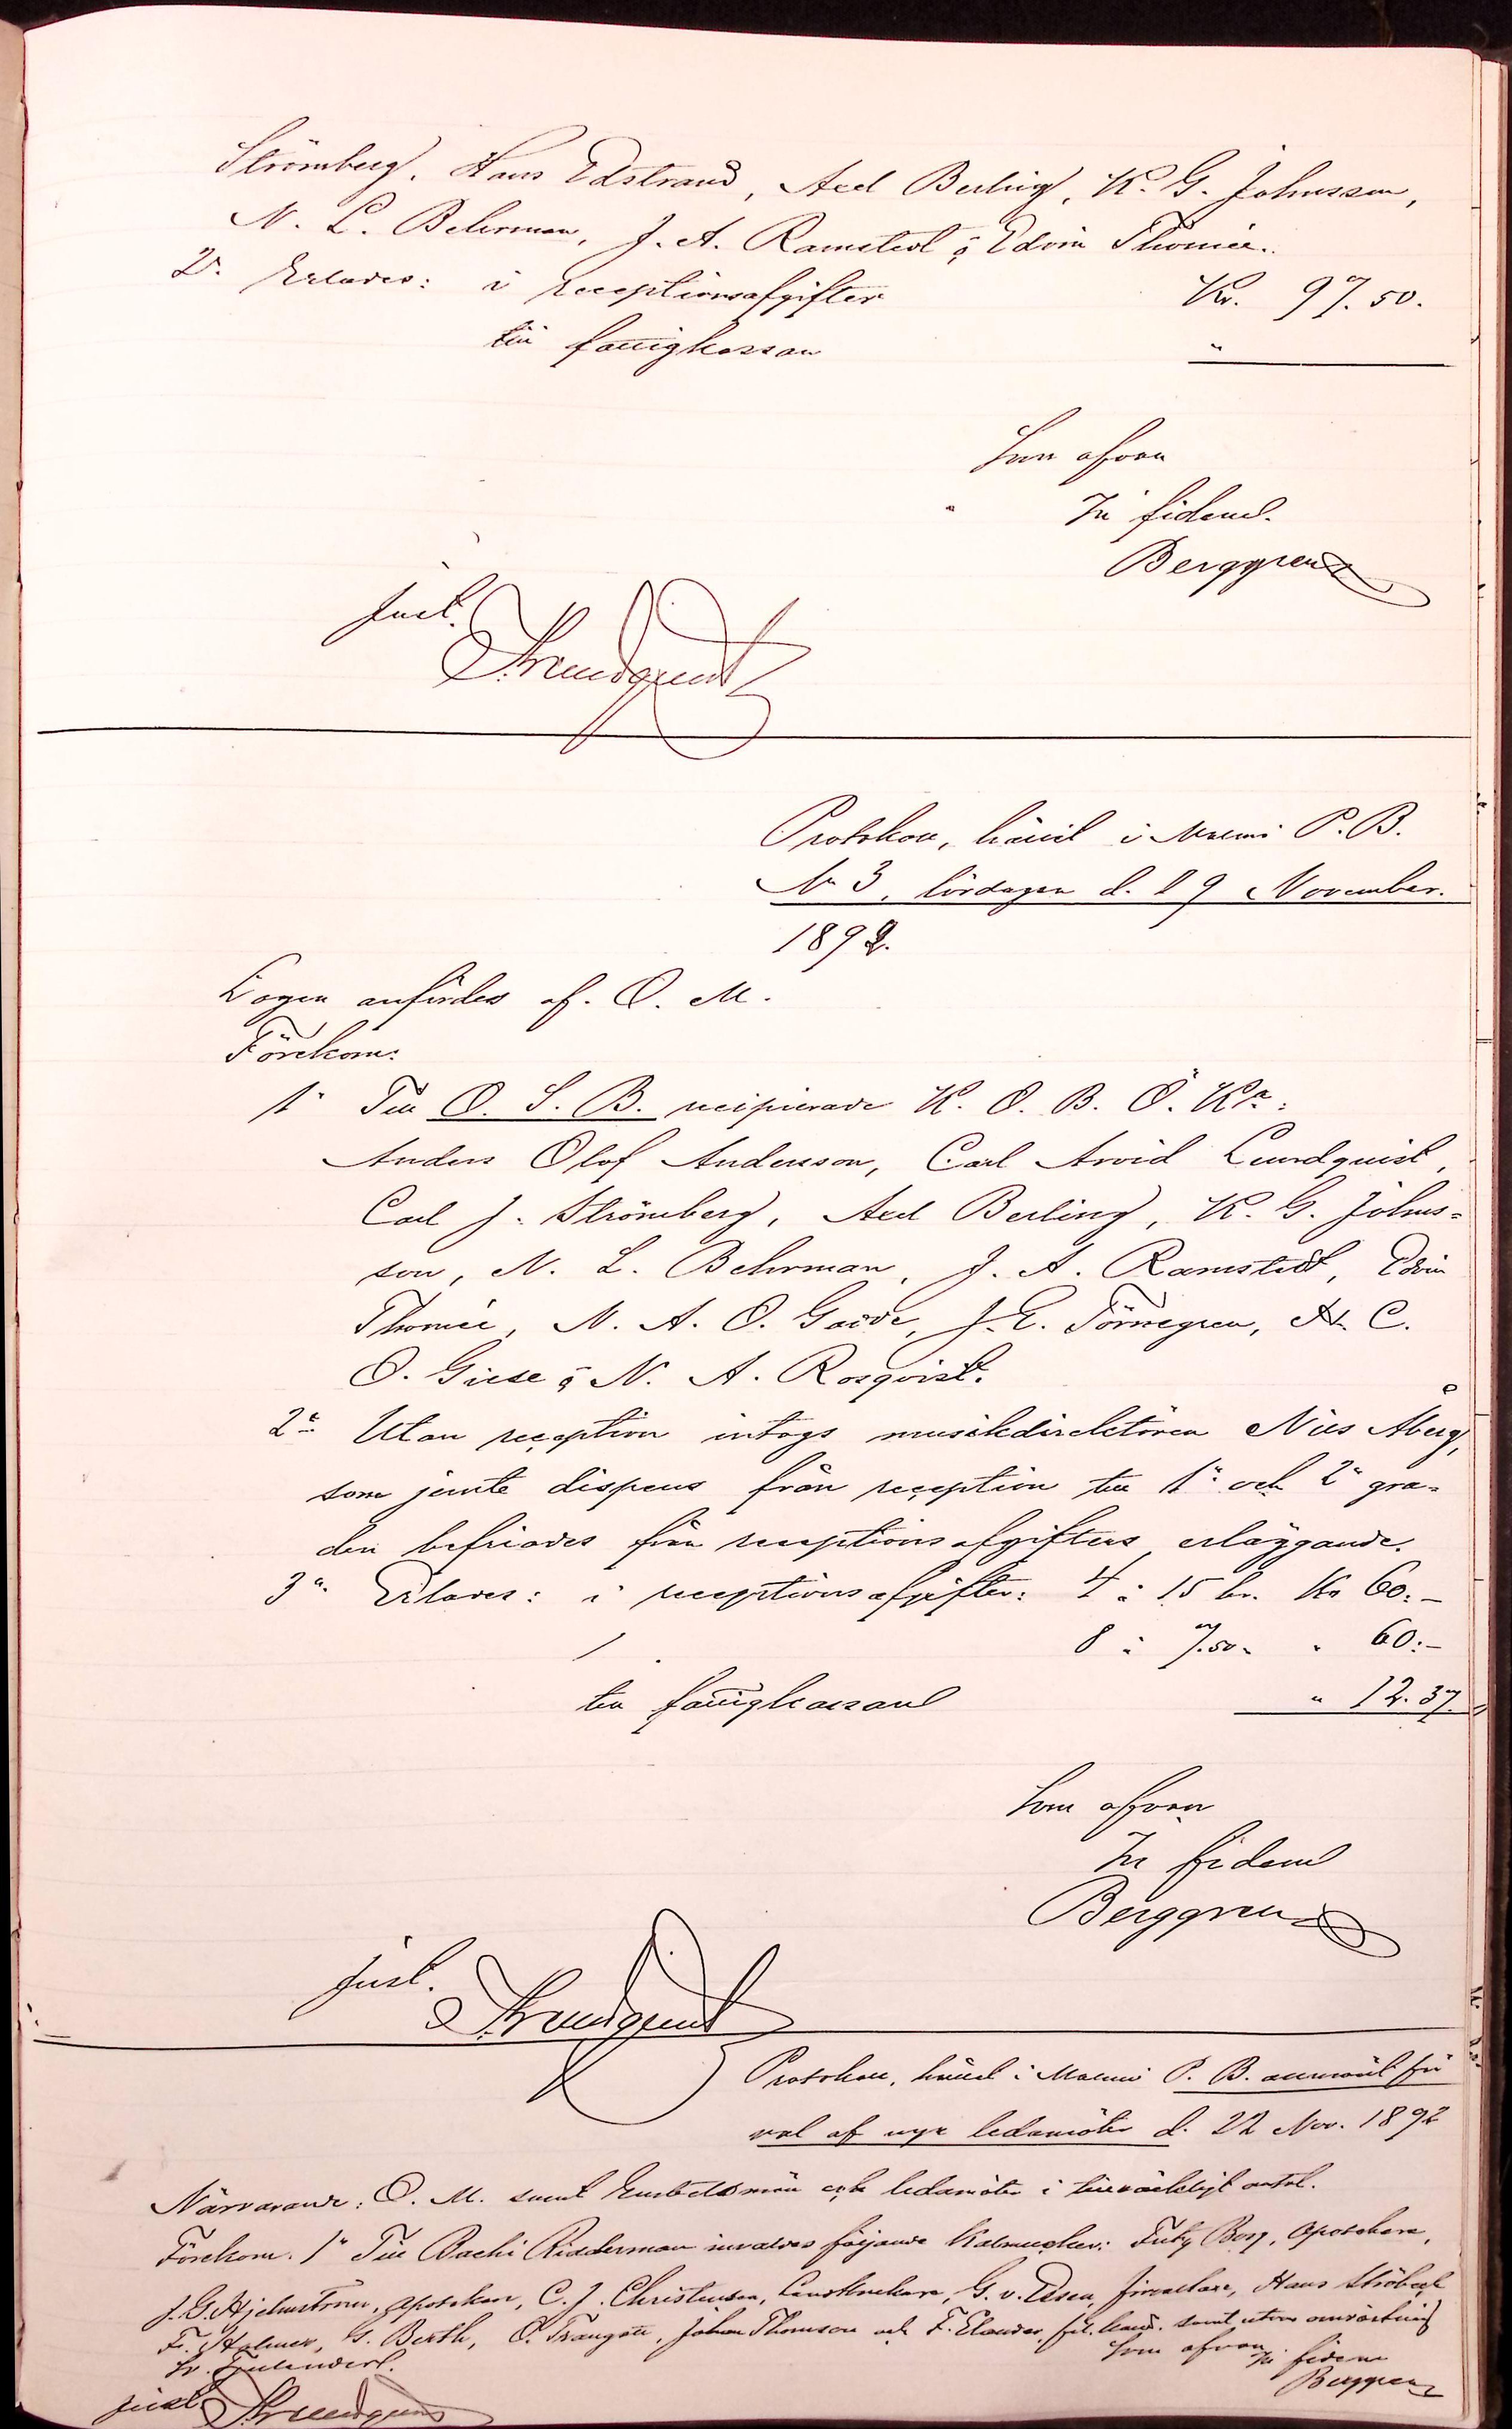 Strömberg, Hans Edstrand, Axel Berling, K. G. Johnsson,
N. L. Behrman, J. A. Ramstedt & Edvin Thomée.
2º Erlades: i receptionsafgifter Kr. 97.50.
till fattigkassan "
Som ofvan
In fidem
Berggren
Just.
Protokoll, hållit i Malmö P. B.
N 3, lördagen d. 19 November.
1892.
Logen anfördes af O. M.
Förekom:
1º Till O. S. B. recipierade K. O. B. O. Kr:
Anders Olof Andersson, Carl Arvid Lundquist,
Carl J. Strömberg, Axel Berling, K. G. Johns=
son, N. L. Behrman, J. A. Ramstedt, Edvin
Thomée, N. A. O. Gadde, J. E. Törnegren, A. C.
O. Giese & N. A. Rosqvist.
2º Utan reception intogs musikdirektören Nils Åberg,
som jemte dispens från reception till 1º och 2º gra=
den befriades från receptionsafgifters erläggande.
3º Erlades: i receptionsafgifter: 4 à 15 kr. Kr 60:-
8 à 7.50 " 60:-
till fattigkassan " 12.37
Som ofvan
In fidem
Berggren
Just.
Protokoll, hållit i Malmö P. B. allmänt för
val af nye ledamöter d. 22 Nov. 1892
Närvarande: O. M. samt Embetsmän och ledamöter i tillräckligt antal.
Förekom. 1º Till Bacchi Riddersman invaldes följande Kalmucker: Berg, apotekare,
J. G. Hjelmström, apotekare, C. J. Christensen, G. v. Essen, Hans Ströbeck
F. Holmer, G. Berth, O. Trangott, Johan Thomson och F. Elander, fil. kand. samt utom omröstning
Hr.
Som ofvan
In fidem
Berggren
Just.